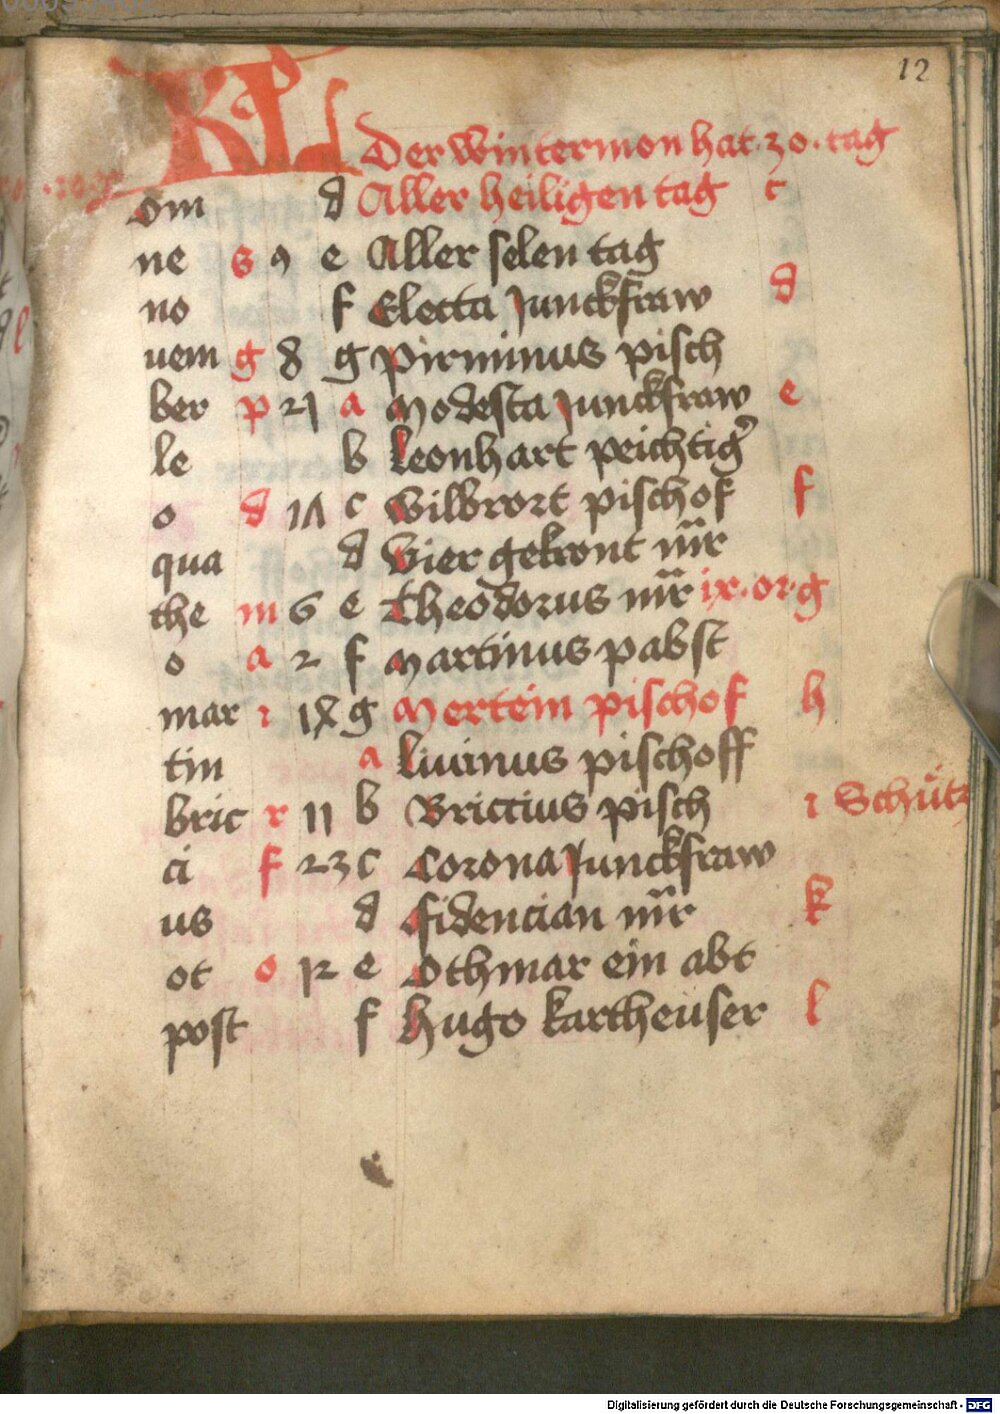 12
KL Der Wintermon hat · 30 · tag
om d Aller heiligen tag c
ne s 9 e Aller selen tag
no f Electa Junckfraw d
uem g 8 g Pirminus pisch
ber p 21 a Modesta Junckfraw e
le b Leonhart peichtig
o d 1Λ c Wilbrort pischof f
qua d Vier gekront mr
the m 6 e Theodorus mr ix · or · g
o a 2 f Martinus pabst
mar i 18 g Mertein pischof h
tin a Liuinus pischoff
bric r 11 b Briccius pisch i Schütz
ci f 23 c Corona Junckfraw
us d Fidencian mr k
ot o 12 e Othmar ein abt
post f Hugo kartheüser l
Digitalisierung gefördert durch die Deutsche Forschungsgemeinschaft - DFG